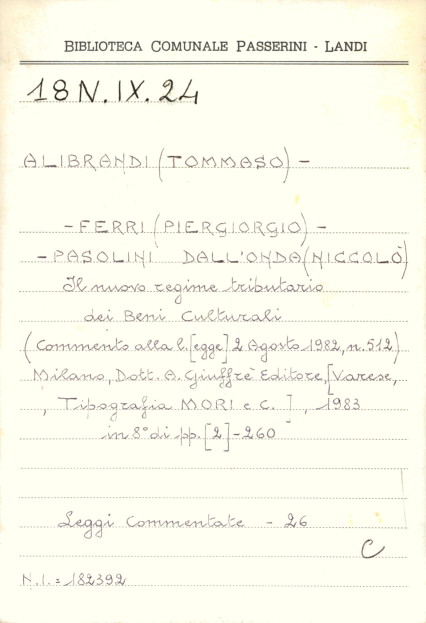 BIBLIOTECA COMUNALE PASSERINI - LANDI
18 N. IX. 24
ALIBRANDI (TOMMASO) -
- FERRI (PIERGIORGIO) -
- PASOLINI DALL'ONDA (NICCOLÒ)
Il nuovo regime tributario
dei Beni Culturali
(Commento alla l.[egge] 2 Agosto 1982, n. 512)
Milano, Dott. A. Giuffrè Editore, [Varese,
, Tipografia MORI e C. ] , 1983
in 8° di pp. [2] - 260
Leggi Commentate - 26
C
N.I. = 182392